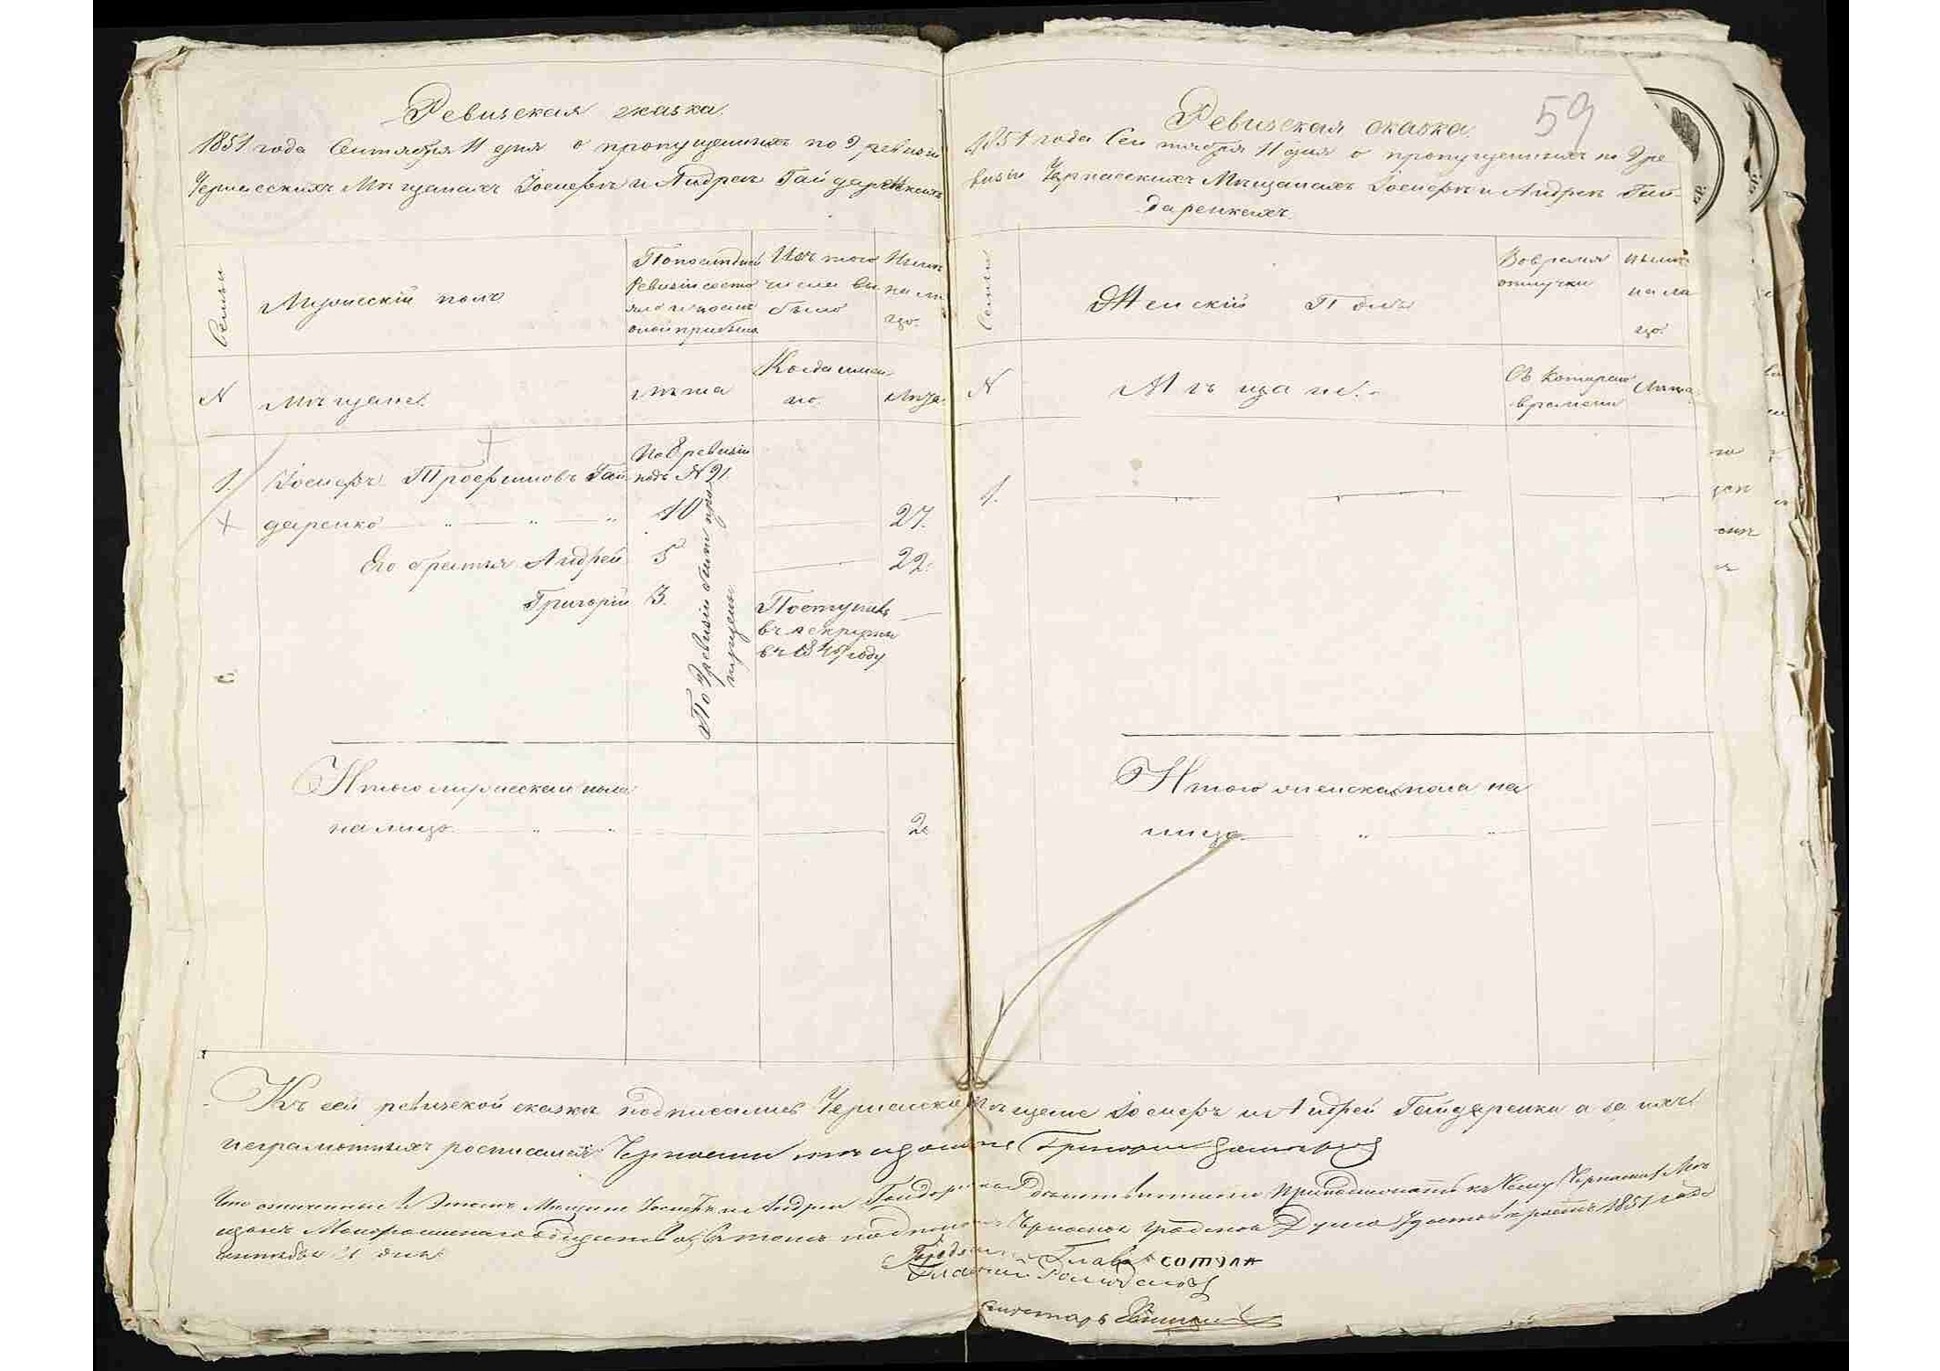 Ревизская сказка
1851 года Сентября 11 дня о пропущенныхъ по 9 ревизіи
Черкасскихъ Мѣщанахъ Іосифѣ и Андреѣ Гайдаренкахъ
Семьи
Мужескій полъ
По последней Ревизіи состояло и после оной прибыло
Изъ того числа выбыло
Нынѣ на лицо.
N
Мѣщане.
Лѣта
Когда именно.
Лѣта.
1.
Іосифъ Трофимовъ Гай
По 8 ревизіи
подъ N 91.
даренко
10
27.
Его братья Андрей
5
22.
Григорій
3.
Поступилъ
въ рекруты
въ 1845 году
По 9 ревизіи были про
пущены
Итого мужеска пола
на лицо
2
59
Ревизская сказка
1851 года Сентября 11 дня о пропущенныхъ по 9 ре
визіи Черкасскихъ Мѣщанахъ Іосифѣ и Андреѣ Гай
даренкахъ.
Семьи
Женскій Полъ
Во время отлучки
Нынѣ на лицо.
N
Мѣщане.
Съ котораго времени
Лѣта
1.
Итого женска пола на
лицо
Къ сей ревизской сказкѣ подписались Черкаскіе Мѣщане Іосифъ и Андрей Гайдаренки а за ихъ
неграмотныхъ росписался Черкаскій мѣщанинъ Григорій
Что означенные Мещане Іосифъ и Андрей Гайдаренки действительно принадлежатъ къ
Черкаская градская Дума удостоверяетъ 1851 года
сентября 21 дня.
Городской Глава
Гласный
Секретарь